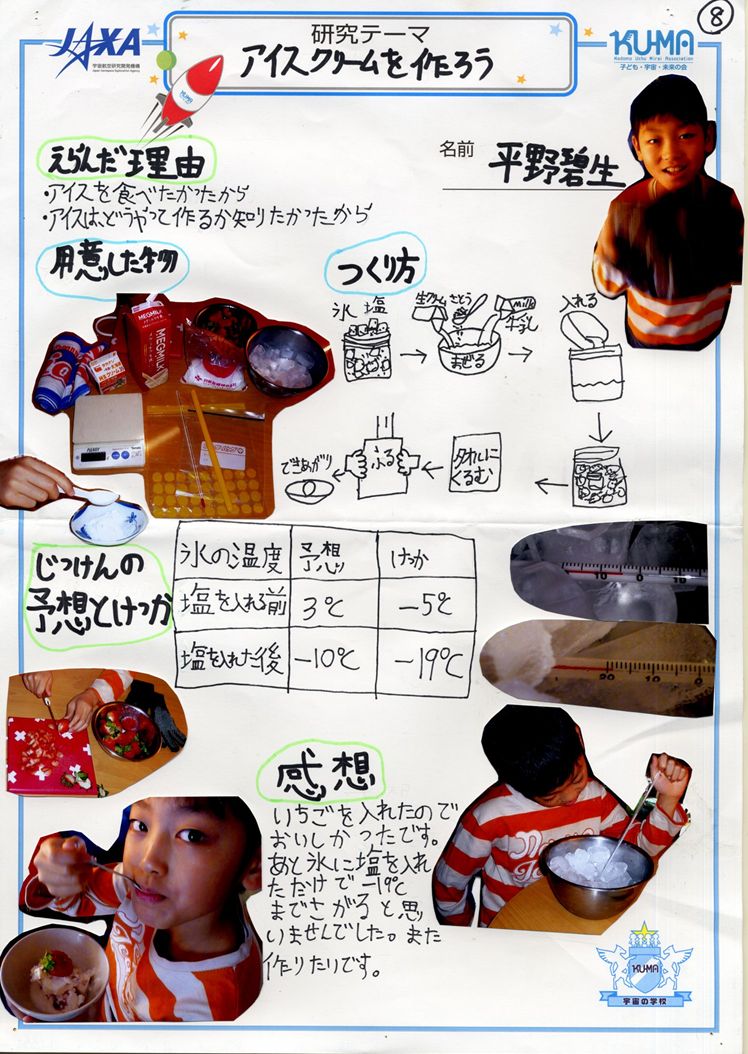 ⑧
JAXA
宇宙航空研究開発機構
Japan Aerospace Exploration Agency
研究テーマ
アイスクリームを作ろう
KU-MA
Kodomo Uchu Mirai Association
子ども・宇宙・未来の会
KU-MA
名前 平野碧生
えらんだ理由
・アイスを食べたかったから
・アイスは、どうやって作るか知りたかったから
用意した物
MEGMILK
MEGMILK
つくり方
氷 塩
生クリーム さとう milk 牛乳
まぜる
入れる
タオルに
くるむ
ふる
できあがり
じっけんの
予想とけっか
氷の温度 予想 けっか
塩を入れる前 3℃ -5℃
塩を入れた後 -10℃ -19℃
10 0 10
20 10 0
感想
いちごを入れたので
おいしかったです。
あと氷に塩を入れ
ただけで-19℃
までさがると思
いませんでした。また
作りたりです。
KU-MA
宇宙の学校